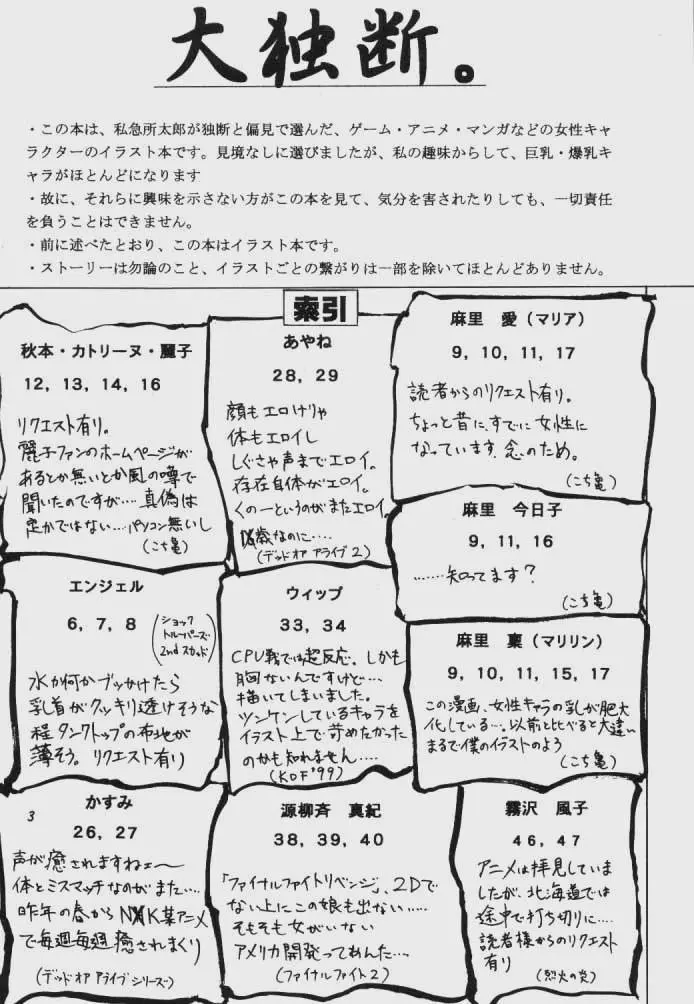 大独断。
・この本は、私急所太郎が独断と偏見で選んだ、ゲーム・アニメ・マンガなどの女性キャ
ラクターのイラスト本です。見境なしに選びましたが、私の趣味からして、巨乳・爆乳キ
ャラがほとんどになります
・故に、それらに興味を示さない方がこの本を見て、気分を害されたりしても、一切責任
を負うことはできません。
・前に述べたとおり、この本はイラスト本です。
・ストーリーは勿論のこと、イラストごとの繋がりは一部を除いてほとんどありません。
索引
秋本・カトリーヌ・麗子
12, 13, 14, 16
リクエスト有り。
麗子ファンのホームページが
あるとか無いとか風の噂で
聞いたのですが…. 真偽は
定かではない…パソコン無いし
(こち亀)
あやね
28, 29
顔もエロけりゃ
体もエロイし
しぐさや声までエロイ。
存在自体がエロイ。
くの一というのがまたエロイ。
歳なのに….
(デッドオア アライブ2)
麻里 愛（マリア）
9, 10, 11, 17
読者からのリクエスト有り。
ちょっと昔に、すでに女性に
なっています。念のため。
(こち亀)
麻里 今日子
9, 11, 16
……知ってます？
(こち亀)
エンジェル
6, 7, 8
(ショック
トルーパーズ
2nd スカッド)
水か何かブッかけたら
乳首がクッキリ透けそうな
程タンクトップの布地が
薄そう。リクエスト有り
ウィップ
33, 34
CPU戦では超反応。しかも
胸ないんですけど…
描いてしまいました。
ツンケンしているキャラを
イラスト上で苛めたかった
のかも知れません….
(KOF'99)
麻里 稟（マリリン）
9, 10, 11, 15, 17
この漫画、女性キャラの乳が肥大
化している…。以前と比べると大違い
まるで僕のイラストのよう
(こち亀)
3
かすみ
26, 27
声が癒されますねェ〜
体とミスマッチなのがまた….
昨年の春からNXK某アニメ
で毎週毎週癒されまくり
(デッドオア アライブシリーズ)
源柳斉 真紀
38, 39, 40
「ファイナルファイトリベンジ」、2Dで
ない上にこの娘も出ない……
そもそも女がいない
アメリカ開発ってあんた…。
(ファイナルファイト2)
霧沢 風子
46, 47
アニメは拝見していま
したが、北海道では
途中で打ち切りに….
読者様からのリクエスト
有り
(烈火の炎)